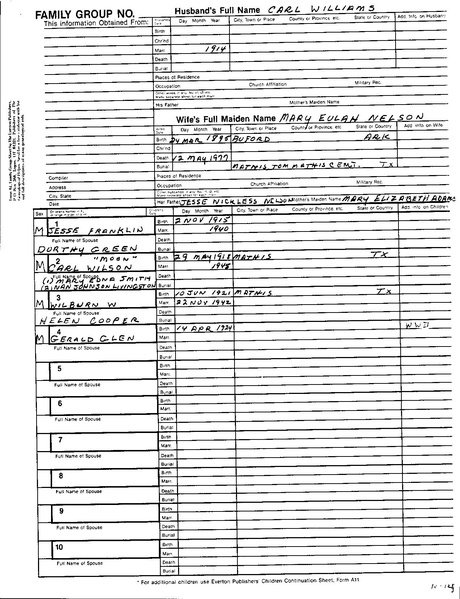 FAMILY GROUP NO.
This information Obtained From:
Husband's Full Name CARL WILLIAMS
Day Month Year City, Town or Place County or Province, etc. State or Country Add. Info. on Husband
Birth
Chr'nd
Marr. 1914
Death
Burial
Places of Residence
Occupation Church Affiliation Military Rec.
His Father Mother's Maiden Name
Wife's Full Maiden Name MARY EULAN NELSON
Day Month Year City, Town or Place County or Province, etc. State or Country Add. Info. on Wife
Birth 24 MAR 1895 BUFORD ARK
Chr'nd
Death 12 MAY 1977
Burial MATHIS, TOM MATHIS CEMT. TX
Compiler Places of Residence
Address Occupation Church Affiliation Military Rec.
City, State
Date Her Father JESSE NICKLESS NELSON Mother's Maiden Name MARY ELIZABETH ADAMS
Sex Day Month Year City, Town or Place County or Province, etc. State or Country Add. Info. on Children
1 Birth 2 NOV 1915
M JESSE FRANKLIN Marr. 1940
Full Name of Spouse Death
DORTHY GREEN Burial
2 "MOON" Birth 29 MAY 1918 MATHIS TX
M CARL WILSON Marr. 1945
Full Name of Spouse Death
(1) MARY EDNA SMITH
(2) NAN JOHNSON LIVINGSTON Burial
3 Birth 10 JUN 1921 MATHIS TX
M WILBURN W Marr. 22 NOV 1942
Full Name of Spouse Death
HELEN COOPER Burial
4 Birth 14 APR 1924 WWII
M GERALD GLEN Marr.
Full Name of Spouse Death
Burial
5 Birth
Marr.
Full Name of Spouse Death
Burial
6 Birth
Marr.
Full Name of Spouse Death
Burial
7 Birth
Marr.
Full Name of Spouse Death
Burial
8 Birth
Marr.
Full Name of Spouse Death
Burial
9 Birth
Marr.
Full Name of Spouse Death
Burial
10 Birth
Marr.
Full Name of Spouse Death
Burial
* For additional children use Everton Publishers' Children Continuation Sheet, Form A11